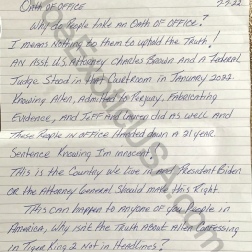 OATH OF OFFICE 2-5-22
Why do People take an Oath of office?
I means Nothing to them to uphold the Truth!
AN Asst US Attorney Charles Brown And A Federal
Judge Stood in that Courtroom in January 2022
Knowing Allen, Admitted to Perjury, Fabricating
Evidence, and Jeff And Lauren did as well And
These People in office Handed down A 21 year
Sentence Knowing I'm innocent,
This is the Country we live in and President Biden
or the Attorney General Should make this Right
This can happen to Anyone of you People in
America, Why isn't the Truth about Allen Confessing
in Tiger King 2 Not in Headlines?